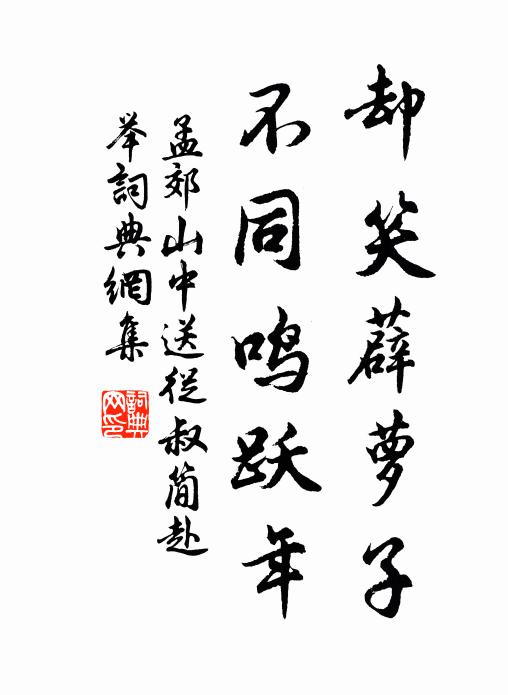 却笑薜萝子
不同鸣跃年
孟郊山中送從叔简赴
举詞典網集
詞典网印